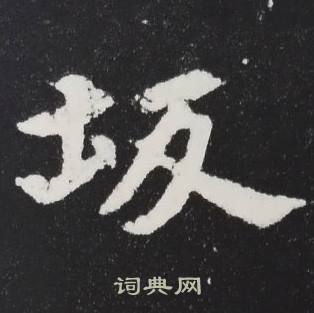 坂
词典网